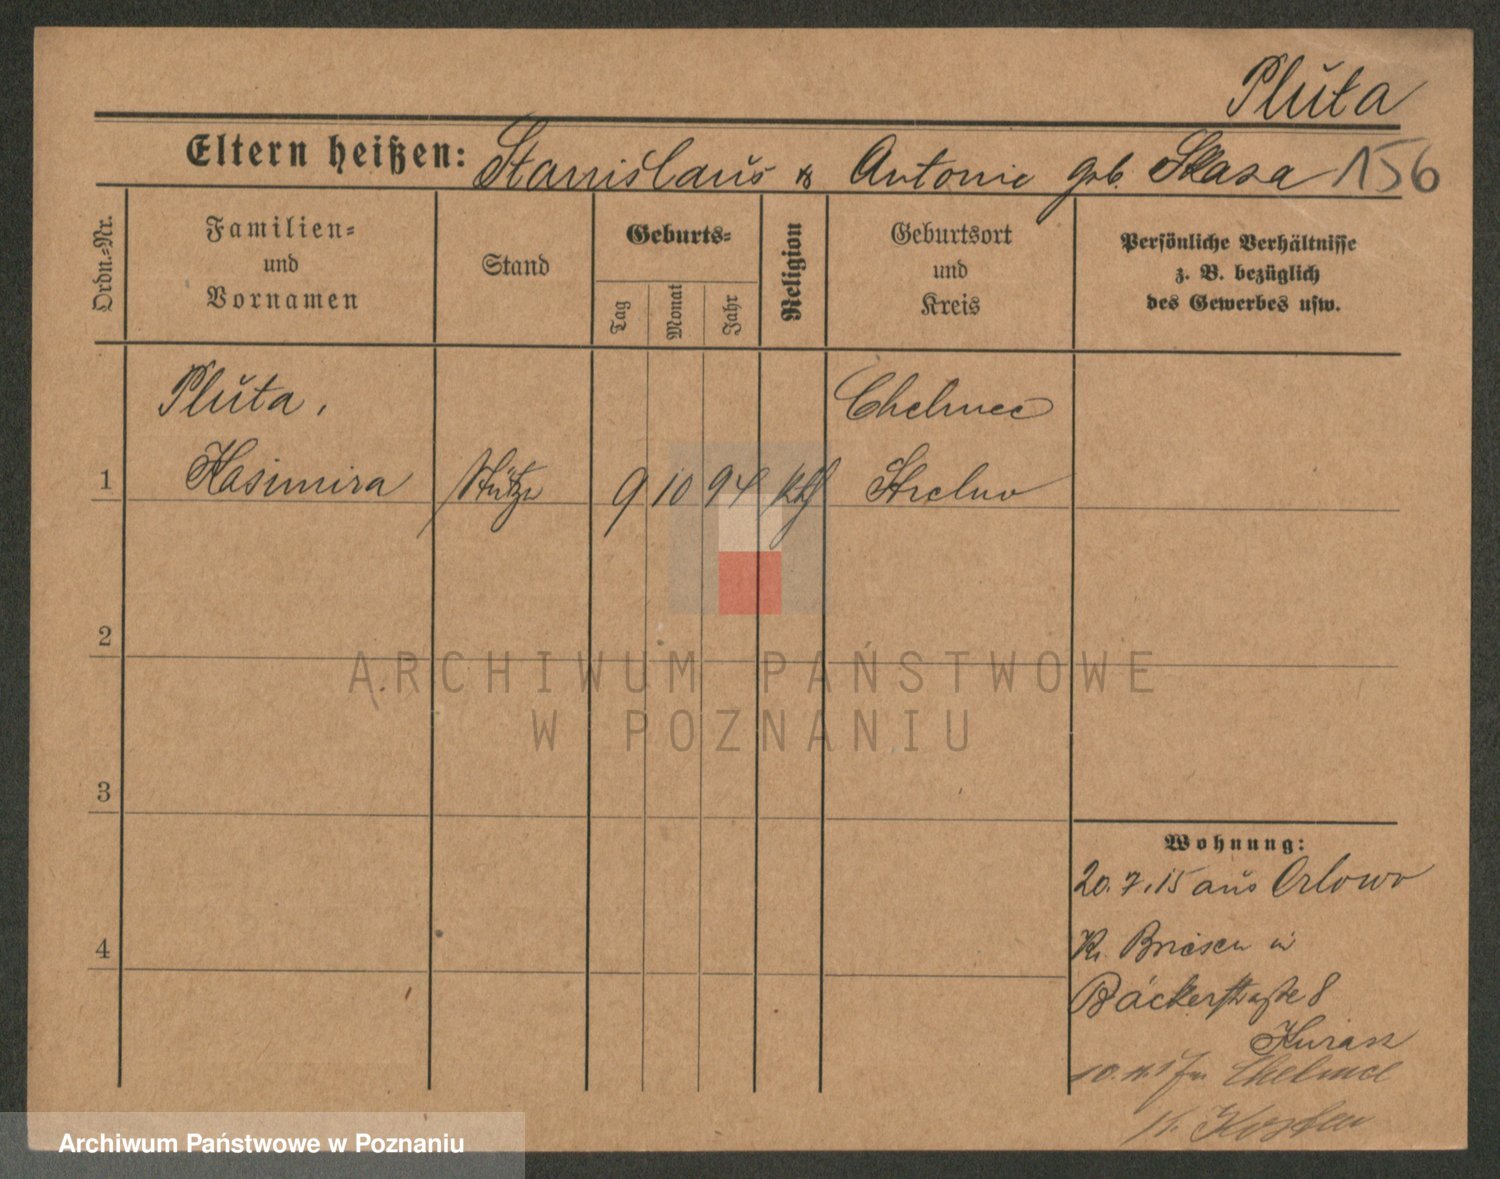 Pluta
Eltern heißen: Stanislaus & Antonie geb. Skasa 156
Ordn.-Nr.
Familien-
und
Vornamen
Stand
Geburts-
Tag
Monat
Jahr
Religion
Geburtsort
und
Kreis
Persönliche Verhältnisse
z. B. bezüglich
des Gewerbes usw.
Pluta,
Kasimira
Chelmce
1 Stütze 9 10 94 kth Strelno
2
ARCHIWUM PAŃSTWOWE
W POZNANIU
3
Wohnung:
20.7.15 aus Orlowo
Kr. Briesen in
4
Bäckerstraße 8
Kurasz
Chelmce
Archiwum Państwowe w Poznaniu